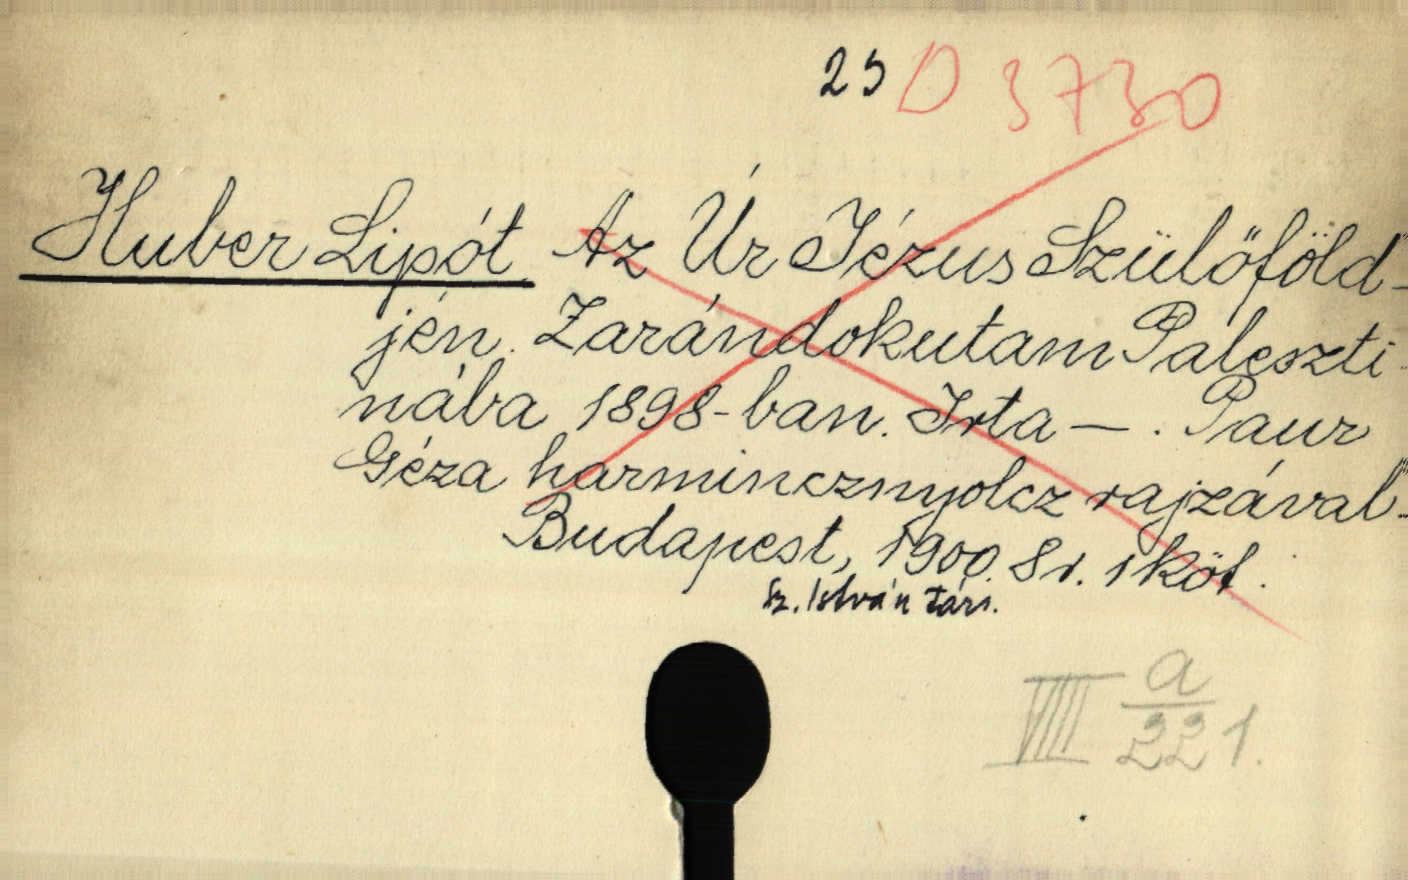 25 D 3730
Huber Lipót Az Úr Jézus Szülőföld-
jén. Zarándokutam Paleszti-
nába 1898-ban. Irta — . Paur
Géza harmincznyolcz rajzával.
Budapest, 1900. 8r. 1 köt.
Sz. István társ.
VIII a
221.